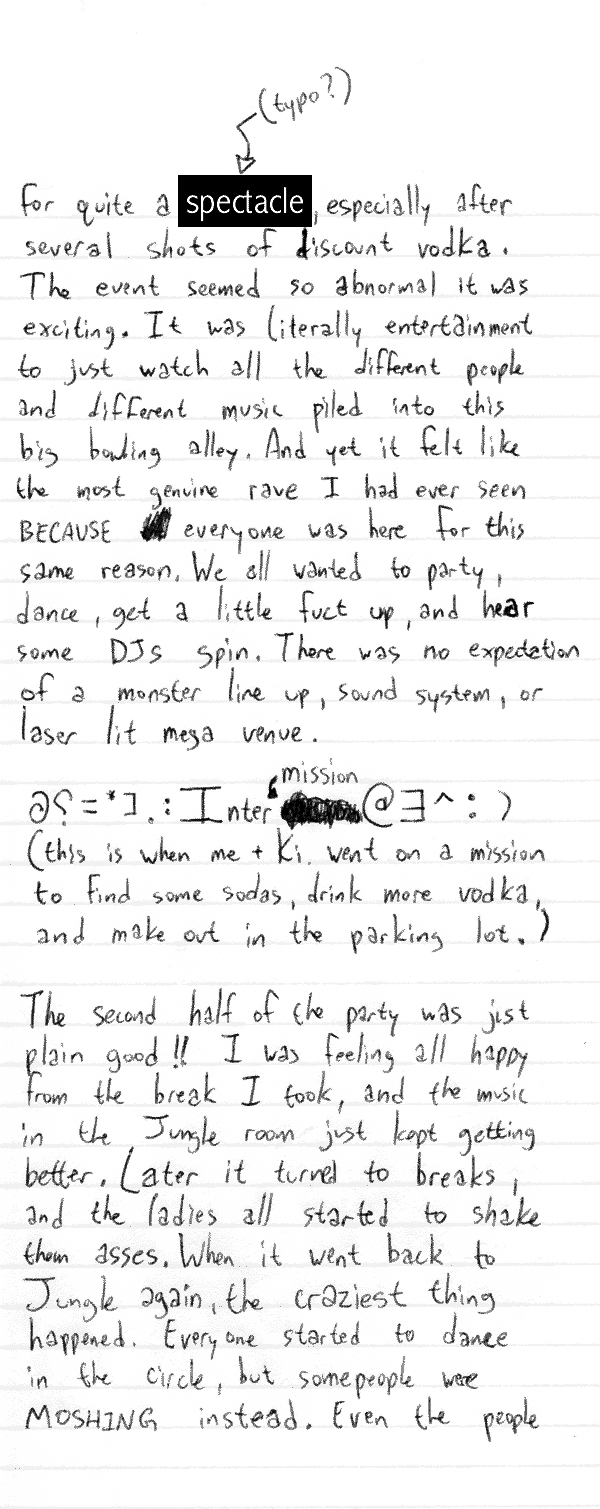 (typo?)
for quite a spectacle, especially after
several shots of discount vodka.
The event seemed so abnormal it was
exciting. It was literally entertainment
to just watch all the different people
and different music piled into this
big bowling alley. And yet it felt like
the most genuine rave I had ever seen
BECAUSE everyone was here for this
same reason. We all wanted to party,
dance, get a little fuct up, and hear
some DJs spin. There was no expectation
of a monster line up, sound system, or
laser lit mega venue.
mission
:Inter @∃^:)
(this is when me + Ki. went on a mission
to find some sodas, drink more vodka,
and make out in the parking lot.)
The second half of the party was just
plain good!! I was feeling all happy
from the break I took, and the music
in the Jungle room just kept getting
better. Later it turned to breaks,
and the ladies all started to shake
them asses. When it went back to
Jungle again, the craziest thing
happened. Everyone started to dance
in the circle, but some people were
MOSHING instead. Even the people